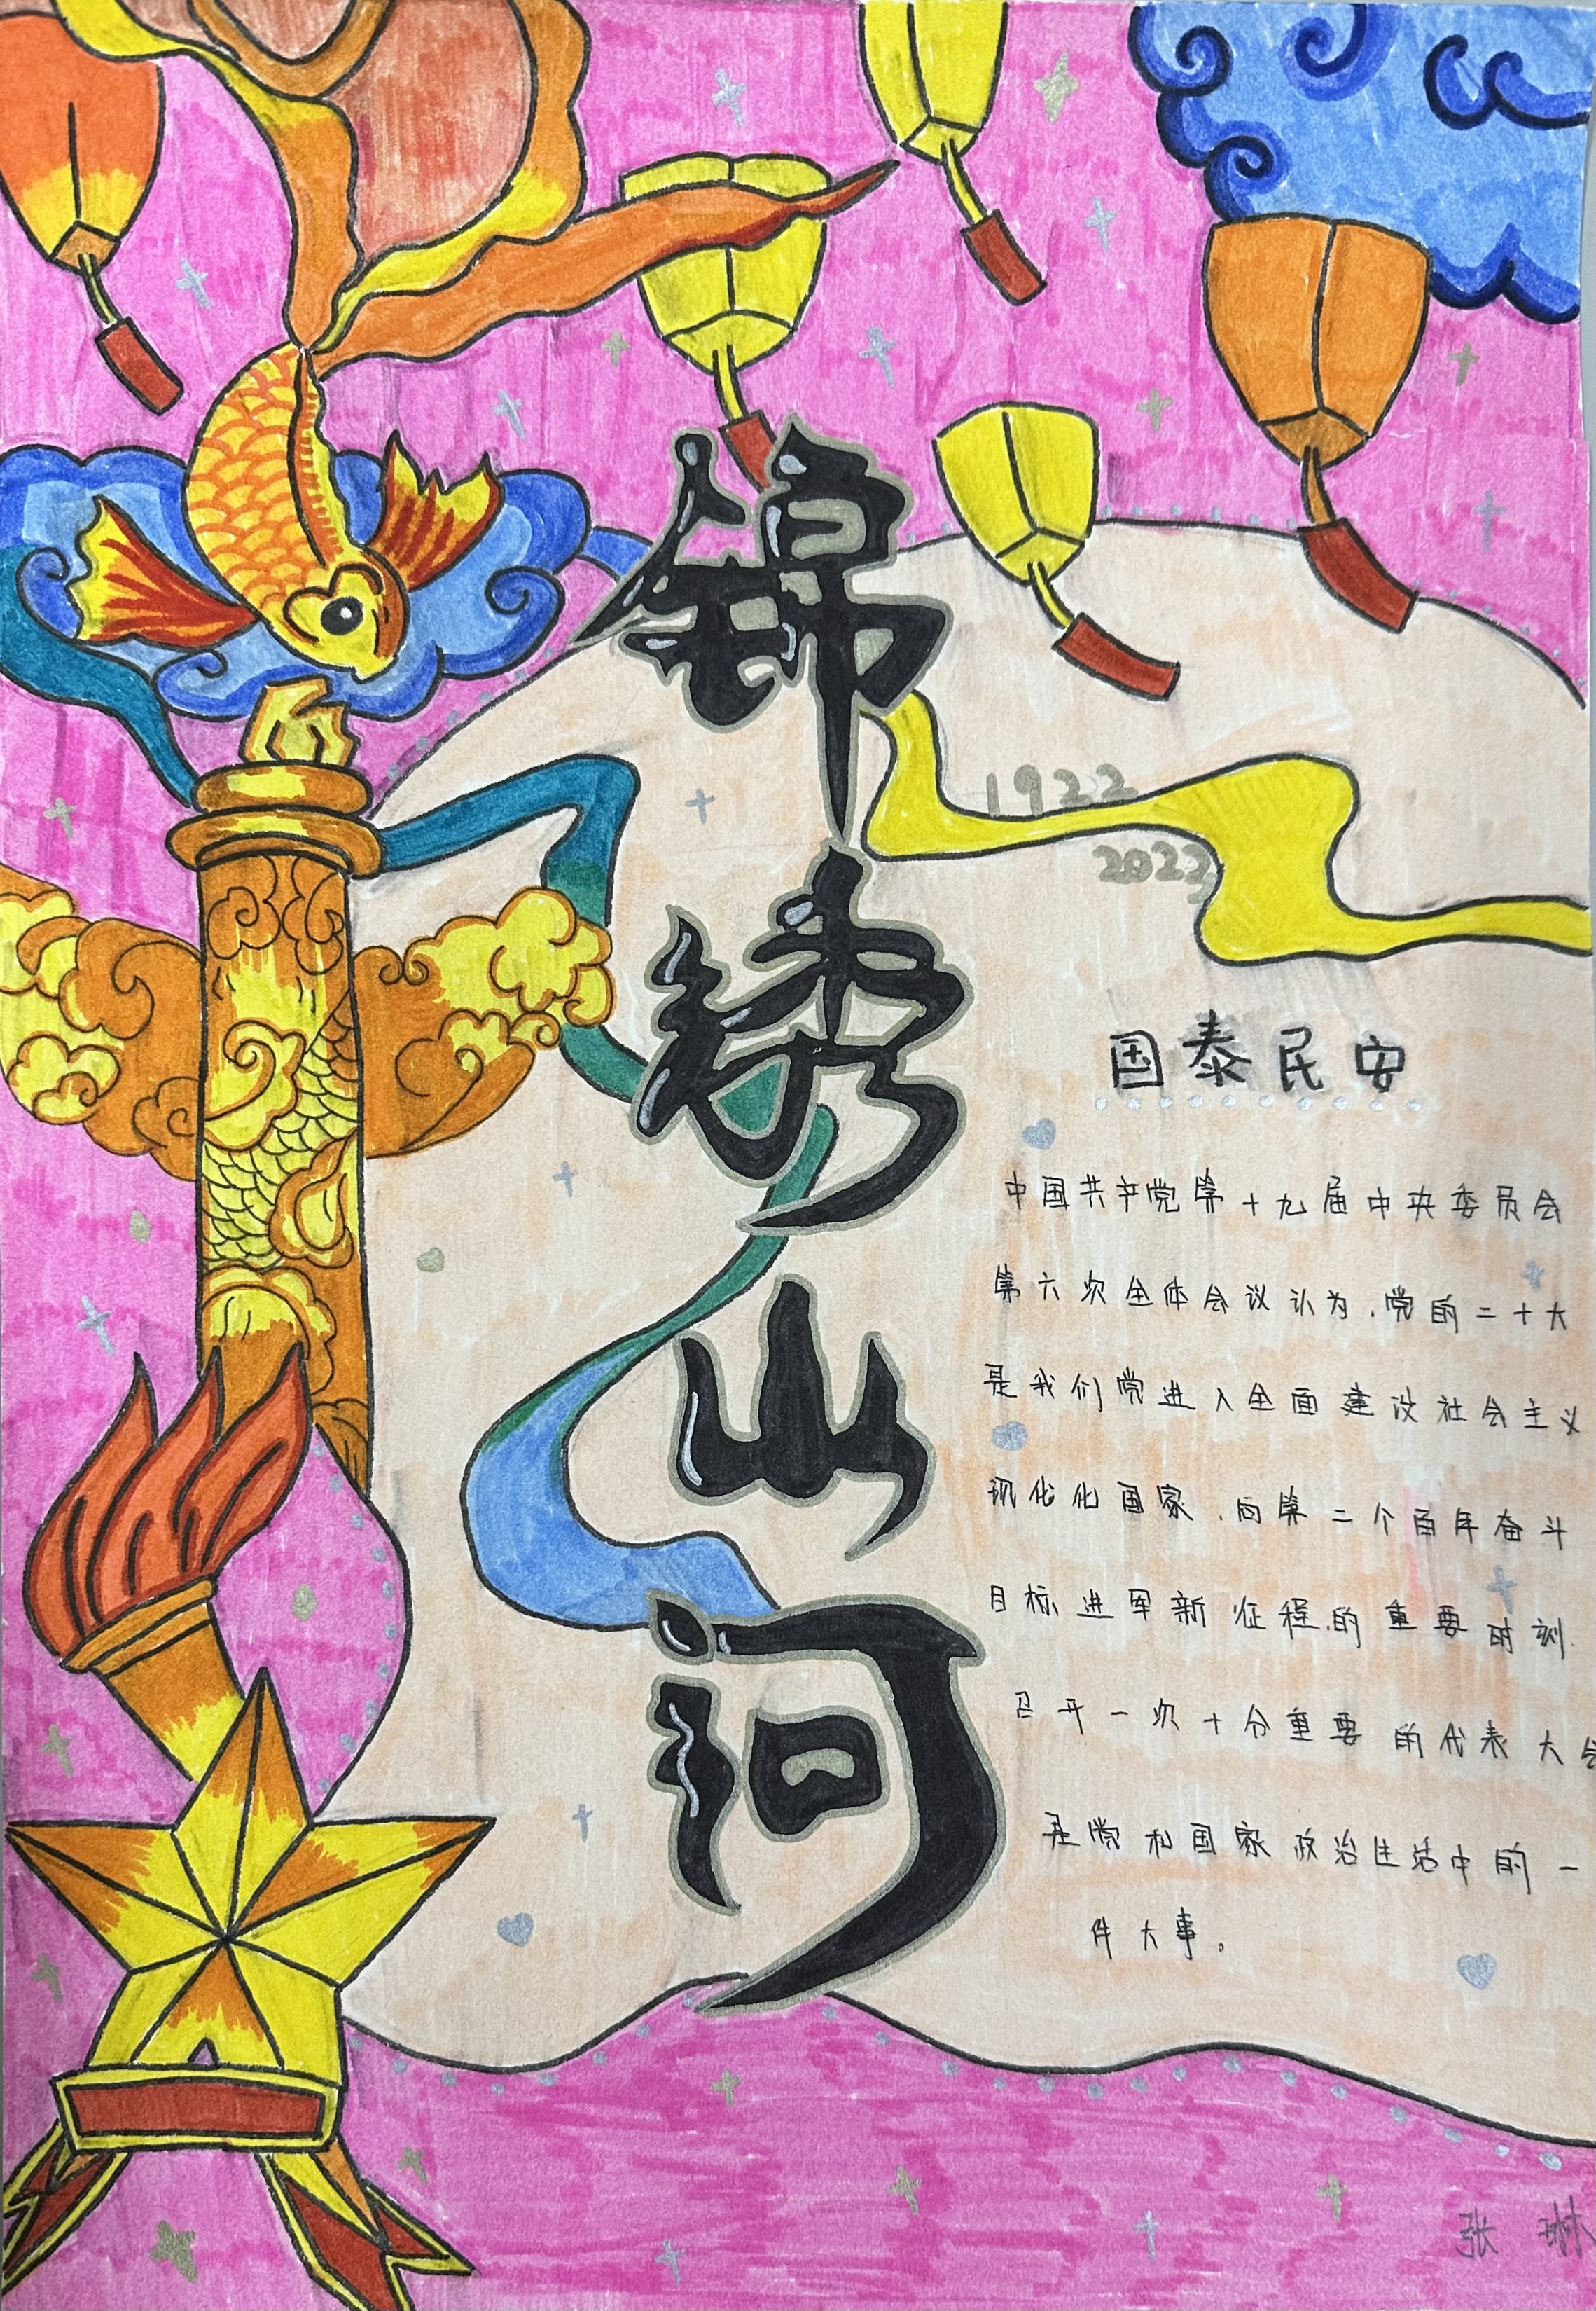 锦绣山河
1922
2022
国泰民安
中国共产党第十九届中央委员会
第六次全体会议认为,党的二十大
是我们党进入全面建设社会主义
现代化国家,向第二个百年奋斗
目标进军新征程的重要时刻
召开一次十分重要的代表大会
是党和国家政治生活中的一
件大事。
张